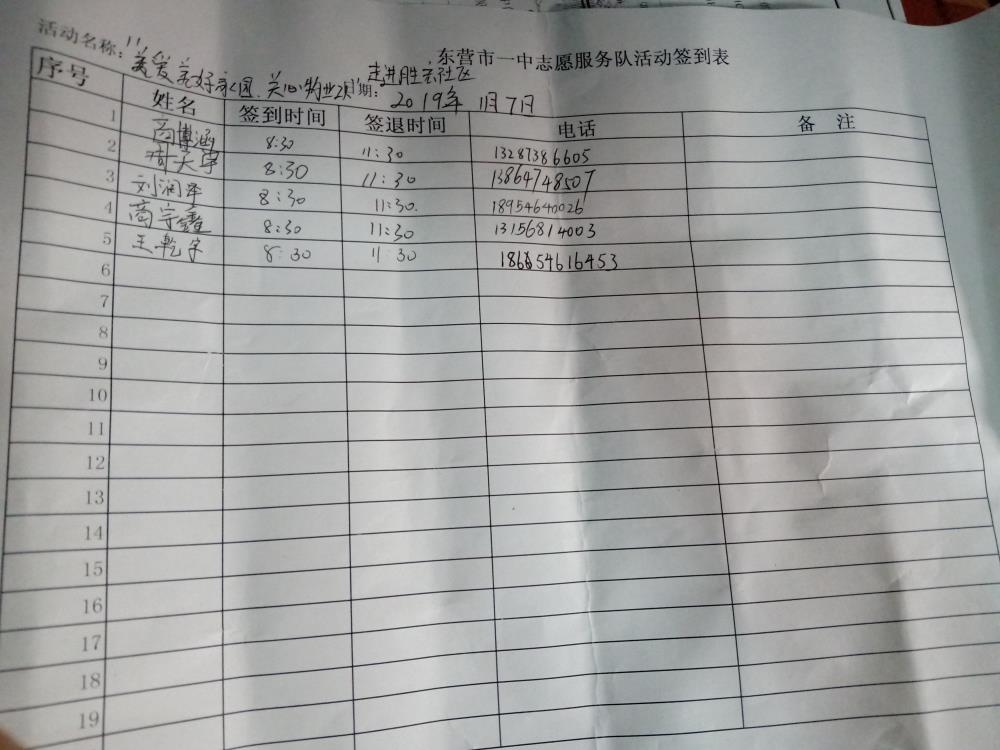 东营市一中志愿服务队活动签到表
活动名称: 美好家园.关心物业 走进胜宏社区 期: 2019年 11月7日
序号 姓名 签到时间 签退时间 电话 备 注
1 商博涵 8:30 11:30 13287386605
2 周大宇 8:30 11:30 13864748507
3 刘润泽 8:30 11:30. 18954640026
4 商宇鑫 8:30 11:30 13156814003
5 王乾宇 8:30 11:30 18654616453
6
7
8
9
10
11
12
13
14
15
16
17
18
19